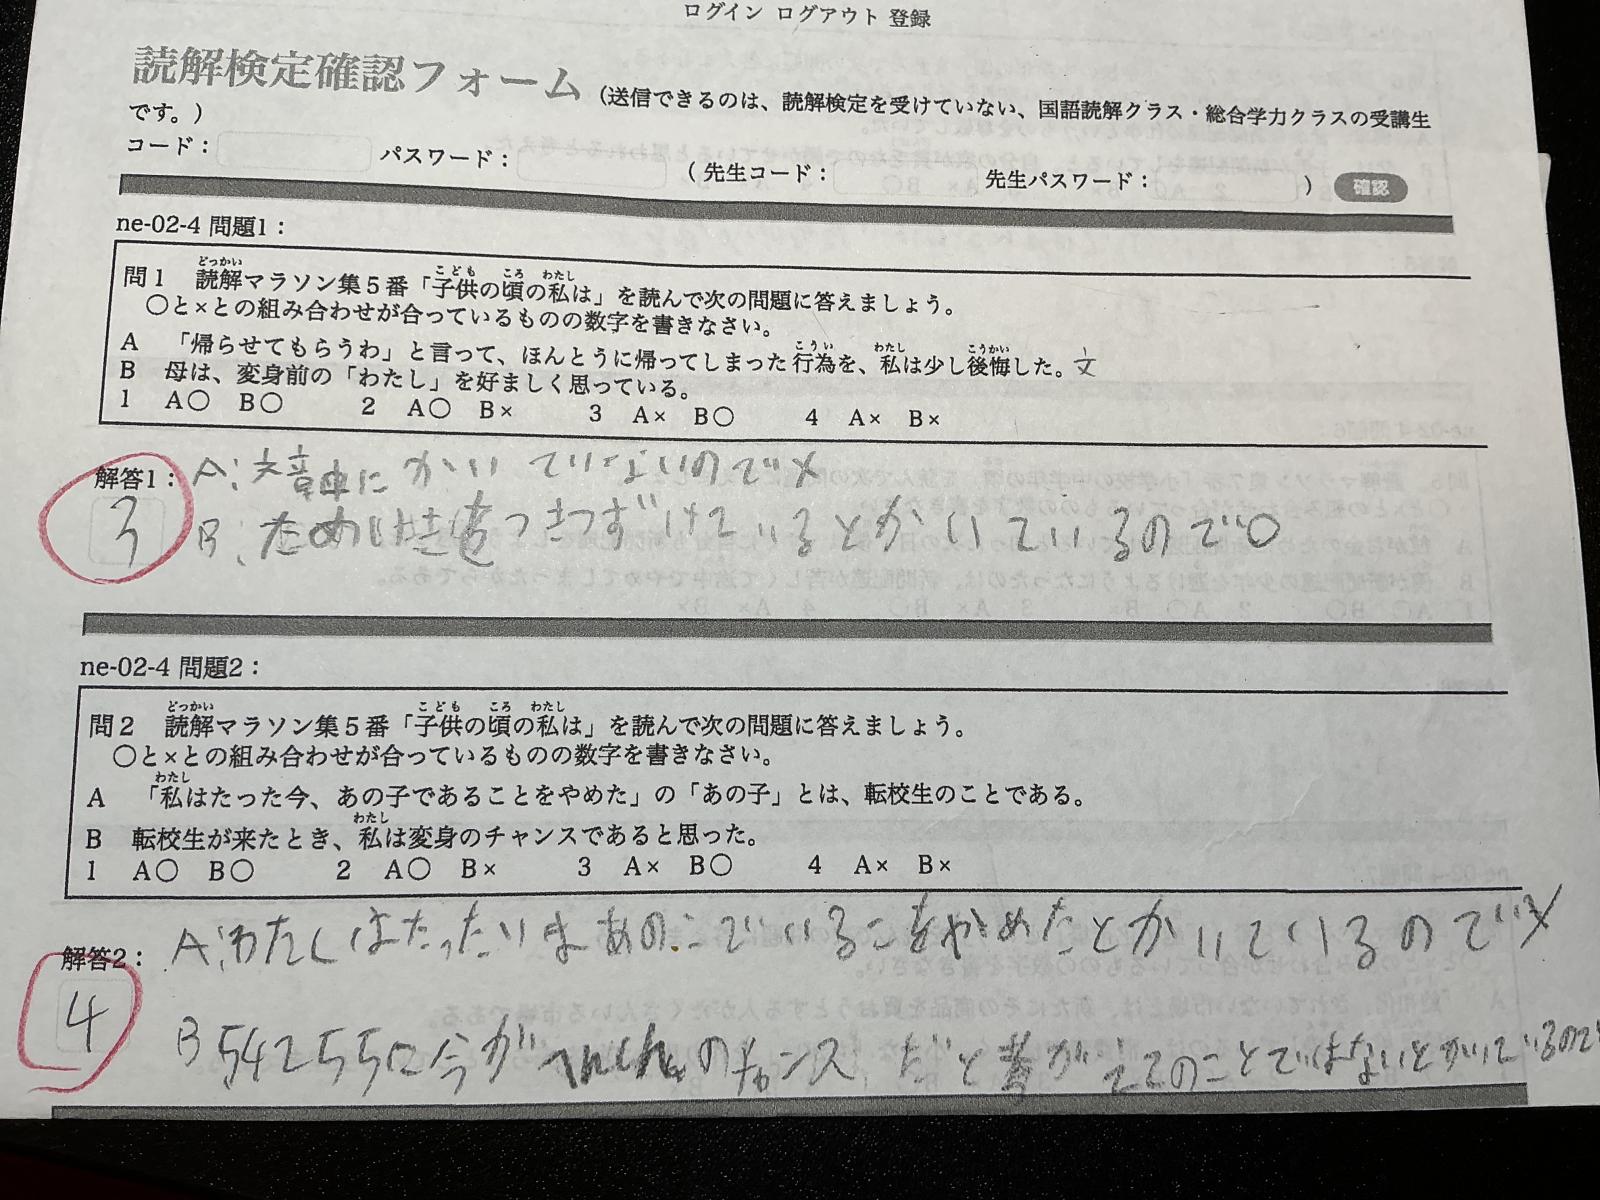 ログイン ログアウト 登録
読解検定確認フォーム（送信できるのは、読解検定を受けていない、国語読解クラス・総合学力クラスの受講生
です。）
コード： パスワード： （先生コード： 先生パスワード： ） 確認
ne-02-4 問題1：
どっかい こども ころ わたし
問１ 読解マラソン集５番「子供の頃の私は」を読んで次の問題に答えましょう。
〇と×との組み合わせが合っているものの数字を書きなさい。
こうい わたし こうかい
A 「帰らせてもらうわ」と言って、ほんとうに帰ってしまった行為を、私は少し後悔した。文
B 母は、変身前の「わたし」を好ましく思っている。
1 A〇 B〇 2 A〇 B× 3 A× B〇 4 A× B×
解答1： A:文章にかいていないので×
3
B:ためいき つづけているとかいているので〇
ne-02-4 問題2：
どっかい こども ころ わたし
問２ 読解マラソン集５番「子供の頃の私は」を読んで次の問題に答えましょう。
〇と×との組み合わせが合っているものの数字を書きなさい。
わたし
A 「私はたった今、あの子であることをやめた」の「あの子」とは、転校生のことである。
わたし
B 転校生が来たとき、私は変身のチャンスであると思った。
1 A〇 B〇 2 A〇 B× 3 A× B〇 4 A× B×
解答2： A:わたしはたったいまあのこでいるこをやめたとかいているので×
4
B 54255に今がへんしんのチャンスだと考 てのことではないとかいているので